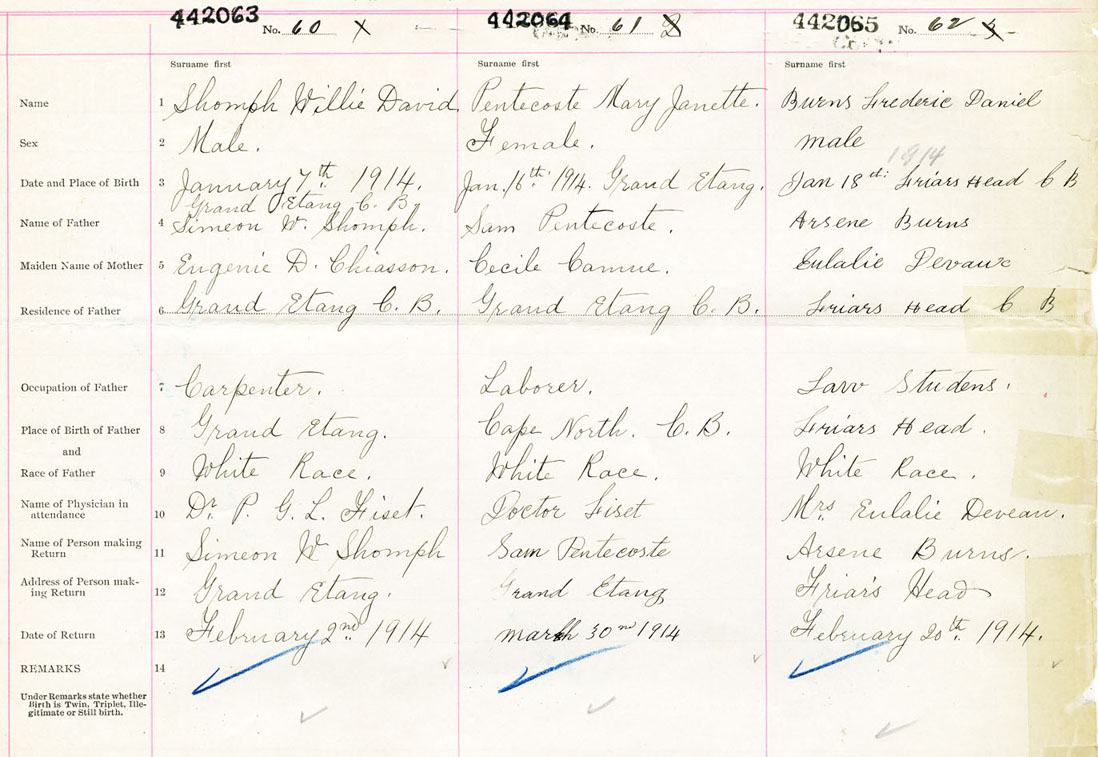 442063 No. 60 442064 No. 61 442065 No. 62
Surname first Surname first Surname first
Name 1 Shomph Willie David Pentecoste Mary Janette. Burns Frederic Daniel
Sex 2 Male. Female. male
1914
Date and Place of Birth 3 January 7th 1914. Jan. 16th 1914. Grand Etang. Jan 18 Friars Head C B
Grand Etang C. B.
Name of Father 4 Simeon W. Shomph. Sam Pentecoste. Arsene Burns
Maiden Name of Mother 5 Eugenie D. Chiasson. Cecile Eulalie Devaux
Residence of Father 6 Grand Etang C. B. Grand Etang C. B. Friars Head C B
Occupation of Father 7 Carpenter. Laborer.
Place of Birth of Father 8 Grand Etang. Cape North. C. B. Friars Head.
and
Race of Father 9 White Race. White Race. White Race.
Name of Physician in
attendance 10 Dr. P. G. L. Fiset. Doctor Fiset Mrs. Eulalie Deveau.
Name of Person making
Return 11 Simeon W Shomph Sam Pentecoste Arsene Burns.
Address of Person mak-
ing Return 12 Grand Etang. Grand Etang Friar's Head
Date of Return 13 February 2nd 1914 march 30 1914 February 20th. 1914.
REMARKS 14
Under Remarks state whether
Birth is Twin, Triplet, Ille-
gitimate or Still birth.